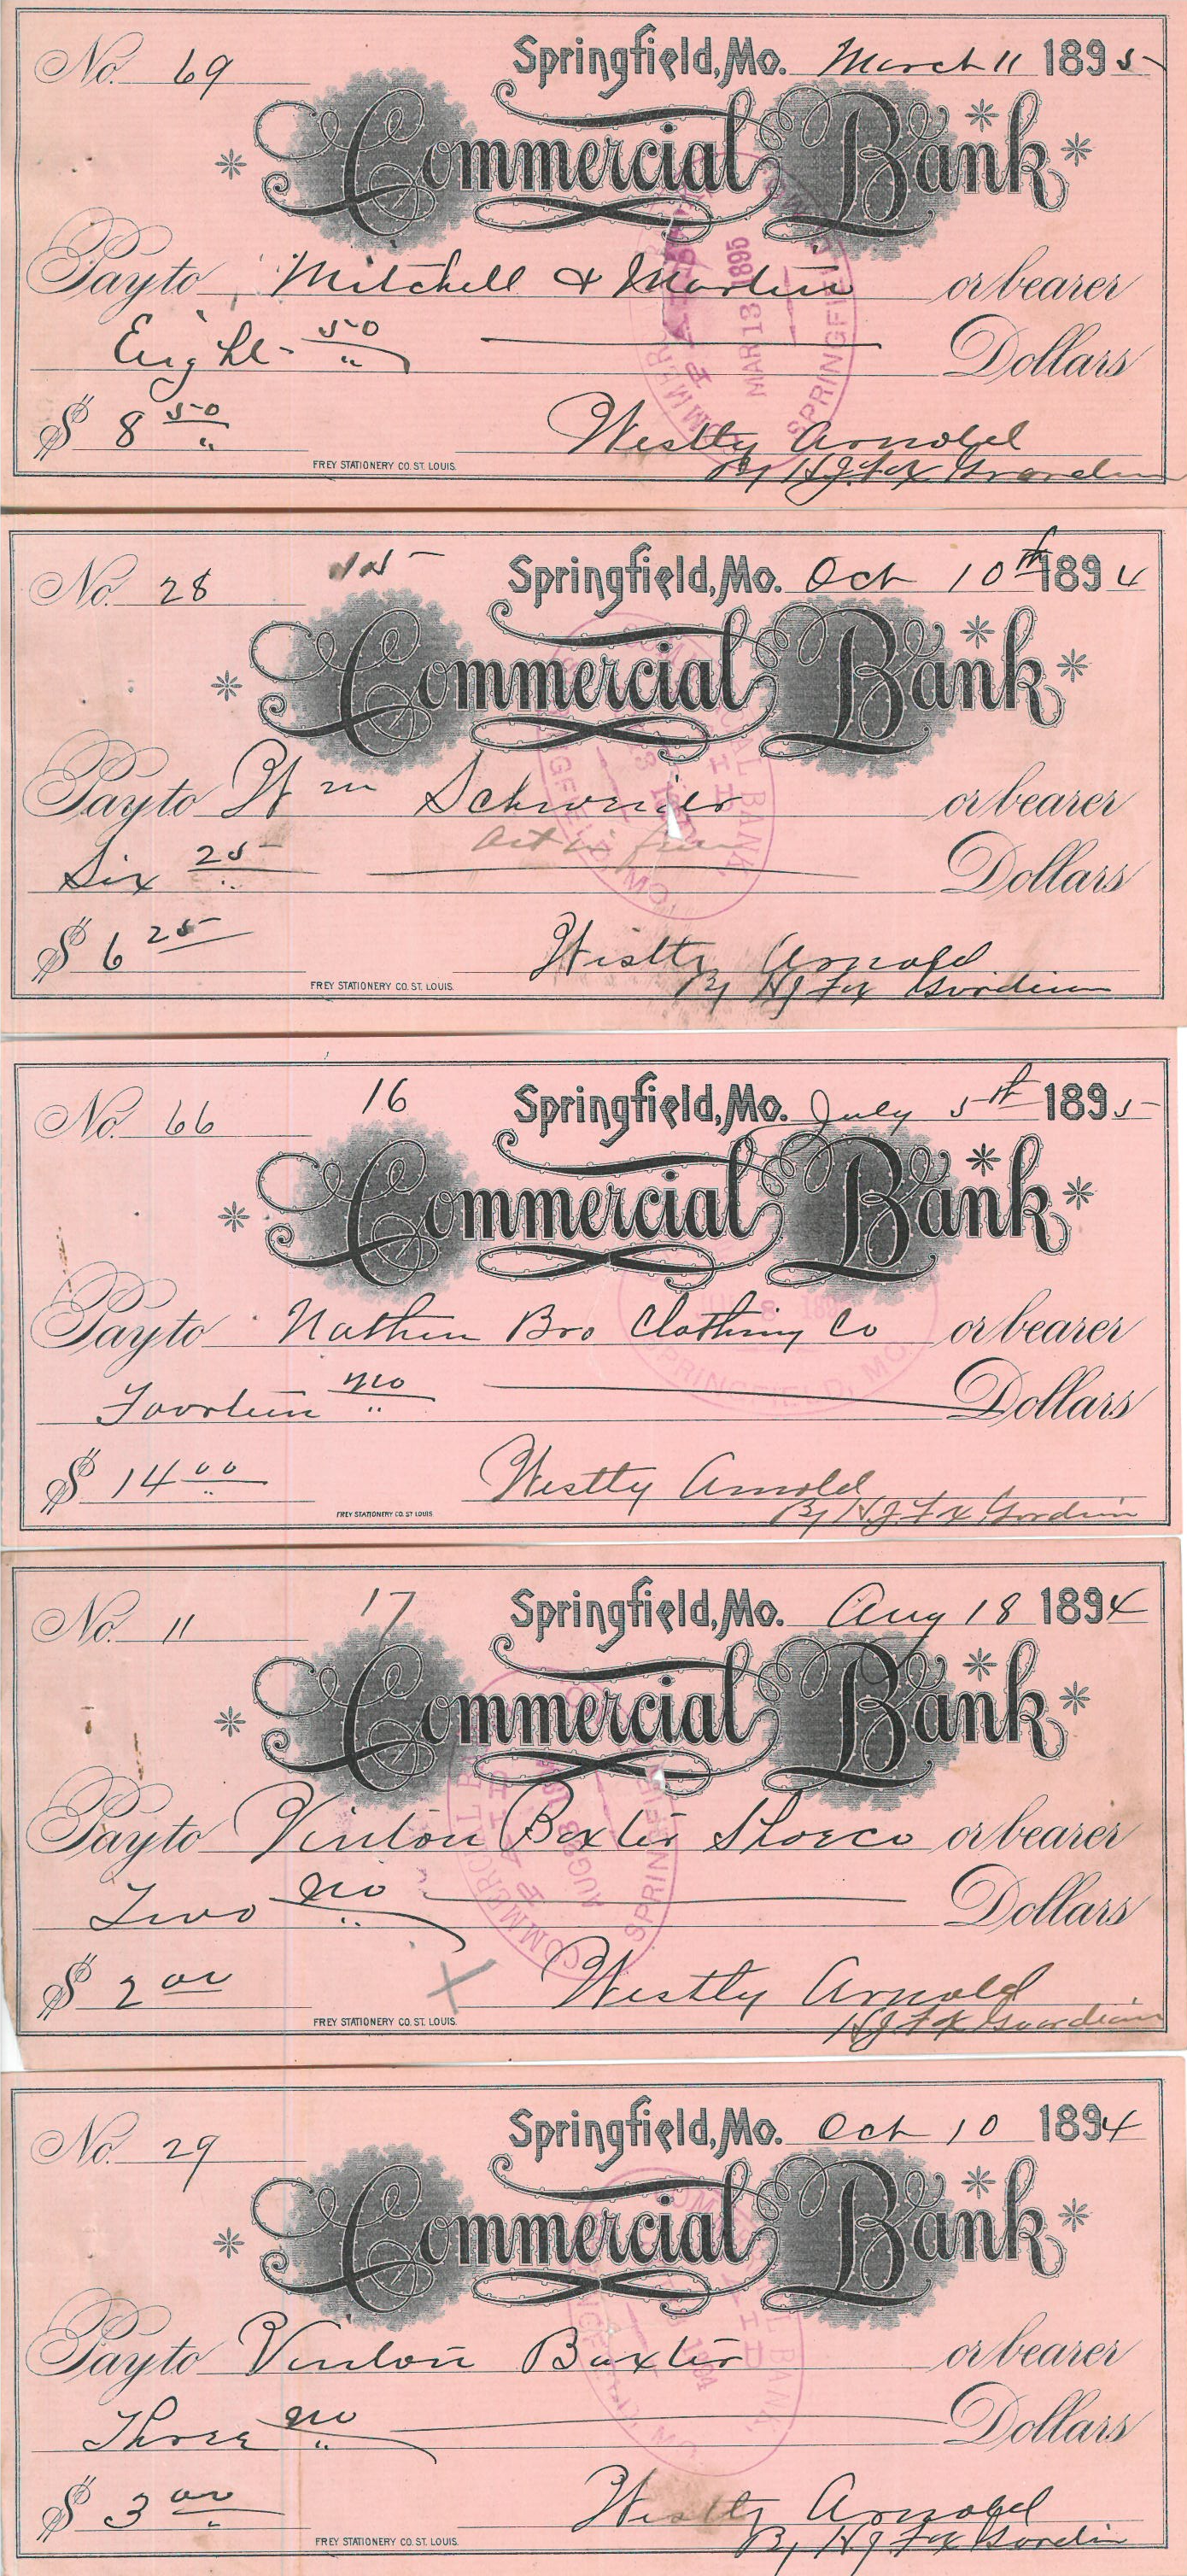 No. 69 Springfield, Mo. March 11 1895
Commercial Bank
Pay to Mitchell & Martin or bearer
Eight 50/" Dollars
$ 8 50/"
Westly Arnold
By H J Fox Guardian
FREY STATIONERY CO. ST. LOUIS.
MAR 13 1895
SPRINGFIELD
No. 28 Springfield, Mo. Oct 10th 1894
Commercial Bank
Pay to Wm Schweider or bearer
Act in full
Six 25/" Dollars
$ 6 25
Westly Arnold
By H J Fox Guardian
FREY STATIONERY CO. ST. LOUIS.
No. 66 16 Springfield, Mo. July 5th 1895
Commercial Bank
Pay to Nathan Bro Clothing Co or bearer
Foorteen no/" Dollars
$ 14 00/"
Westly Arnold
By H J Fox Gordian
FREY STATIONERY CO. ST LOUIS
SPRINGFIELD, MO.
No. 11 17 Springfield, Mo. Aug 18 1894
Commercial Bank
Pay to Vinton Baxter Shoe co or bearer
Two no/" Dollars
$ 2 00
X
Westly Arnold
H J Fox Guardian
FREY STATIONERY CO. ST. LOUIS.
COMMERCIAL BANK
PAID
SPRINGFIELD
No. 29 Springfield, Mo. Oct 10 1894
Commercial Bank
Pay to Vinton Baxter or bearer
Three no/" Dollars
$ 3 00
Westly Arnold
By H J Fox Gordian
FREY STATIONERY CO. ST. LOUIS.